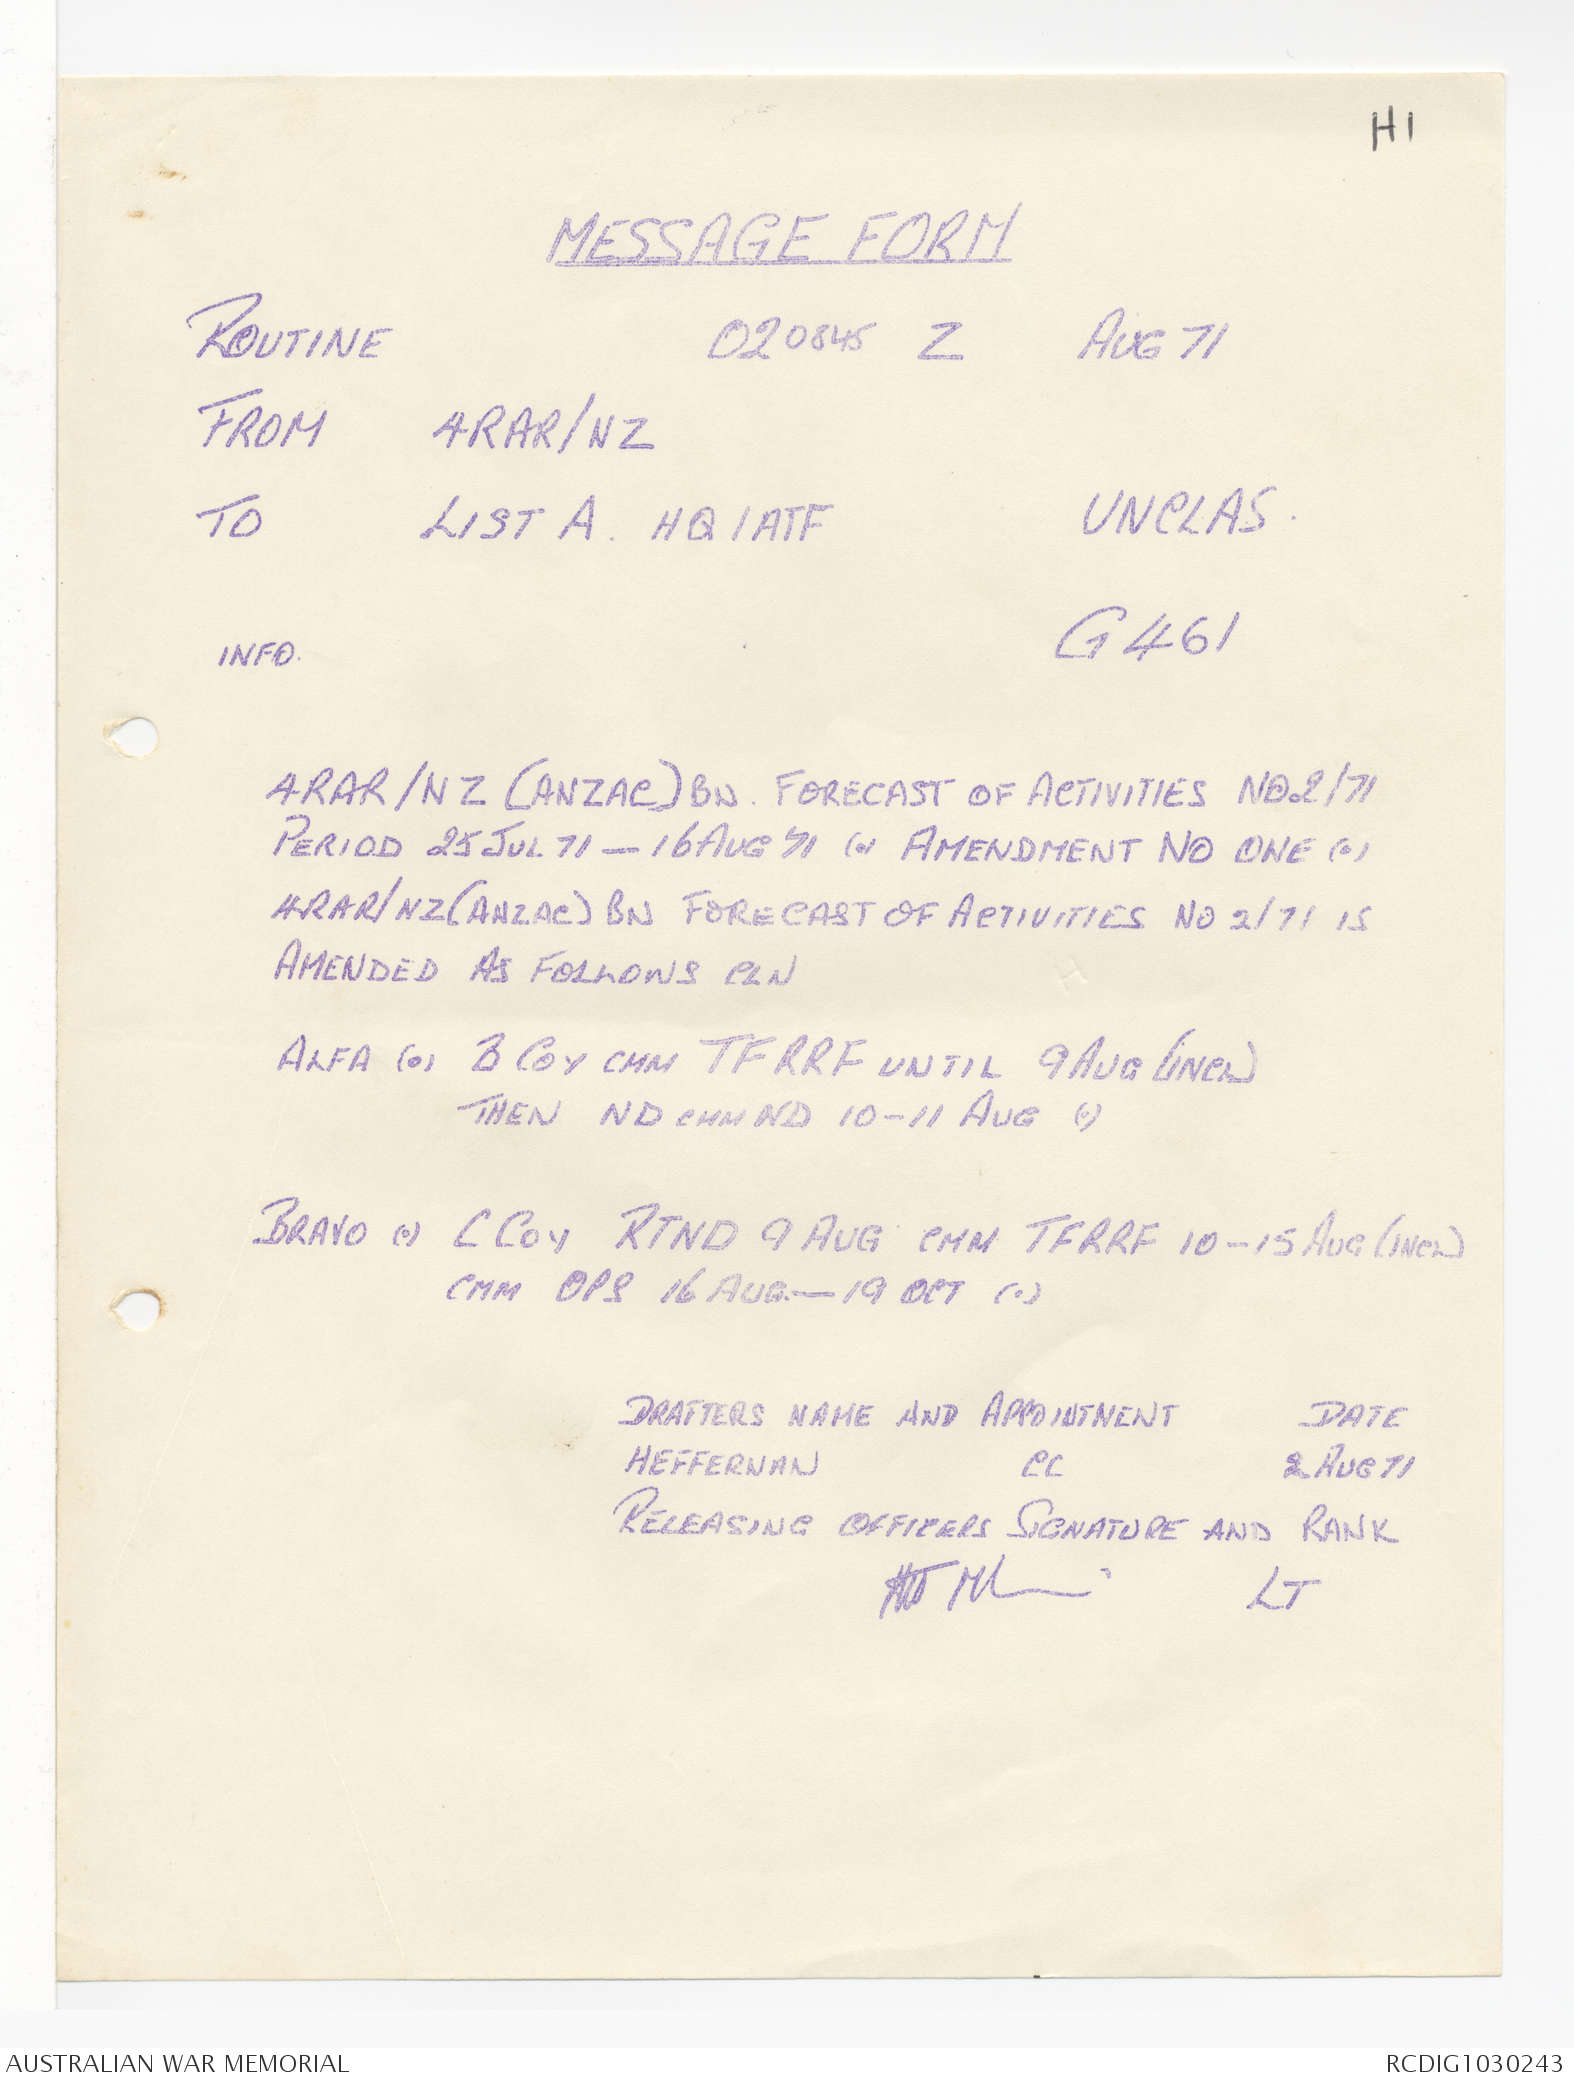 H1
MESSAGE FORM
ROUTINE 020845 Z AUG 71
FROM 4RAR/NZ
TO LIST A. HQ 1ATF UNCLAS.
G461
INFO.
4RAR/NZ (ANZAC) BN. FORECAST OF ACTIVITIES NO 2/71
PERIOD 25 JUL 71 - 16 AUG 71 (.) AMENDMENT NO ONE (.)
4RAR/NZ (ANZAC) BN FORECAST OF ACTIVITIES NO 2/71 IS
AMENDED AS FOLLOWS CLN
ALFA (.) B COY CMM TFRRF UNTIL 9 AUG (INCL)
THEN ND CMM ND 10-11 AUG (.)
BRAVO (.) C COY RTND 9 AUG CMM TFRRF 10-15 AUG (INCL)
CMM OPS 16 AUG - 19 OCT (.)
DRAFTERS NAME AND APPOINTMENT DATE
HEFFERNAN CC 2 AUG 71
RELEASING OFFICERS SIGNATURE AND RANK
LT
AUSTRALIAN WAR MEMORIAL RCDIG1030243